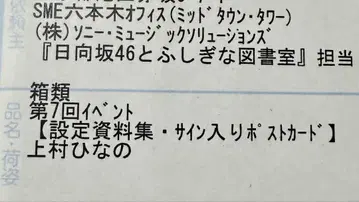 依頼主
SME六本木ｵﾌｨｽ(ﾐｯﾄﾞﾀｳﾝ･ﾀﾜｰ)
(株)ｿﾆｰ･ﾐｭｰｼﾞｯｸｿﾘｭｰｼｮﾝｽﾞ
『日向坂46とふしぎな図書室』担当
品名・荷姿
箱類
第7回ｲﾍﾞﾝﾄ
【設定資料集・ｻｲﾝ入りﾎﾟｽﾄｶｰﾄﾞ】
上村ひなの